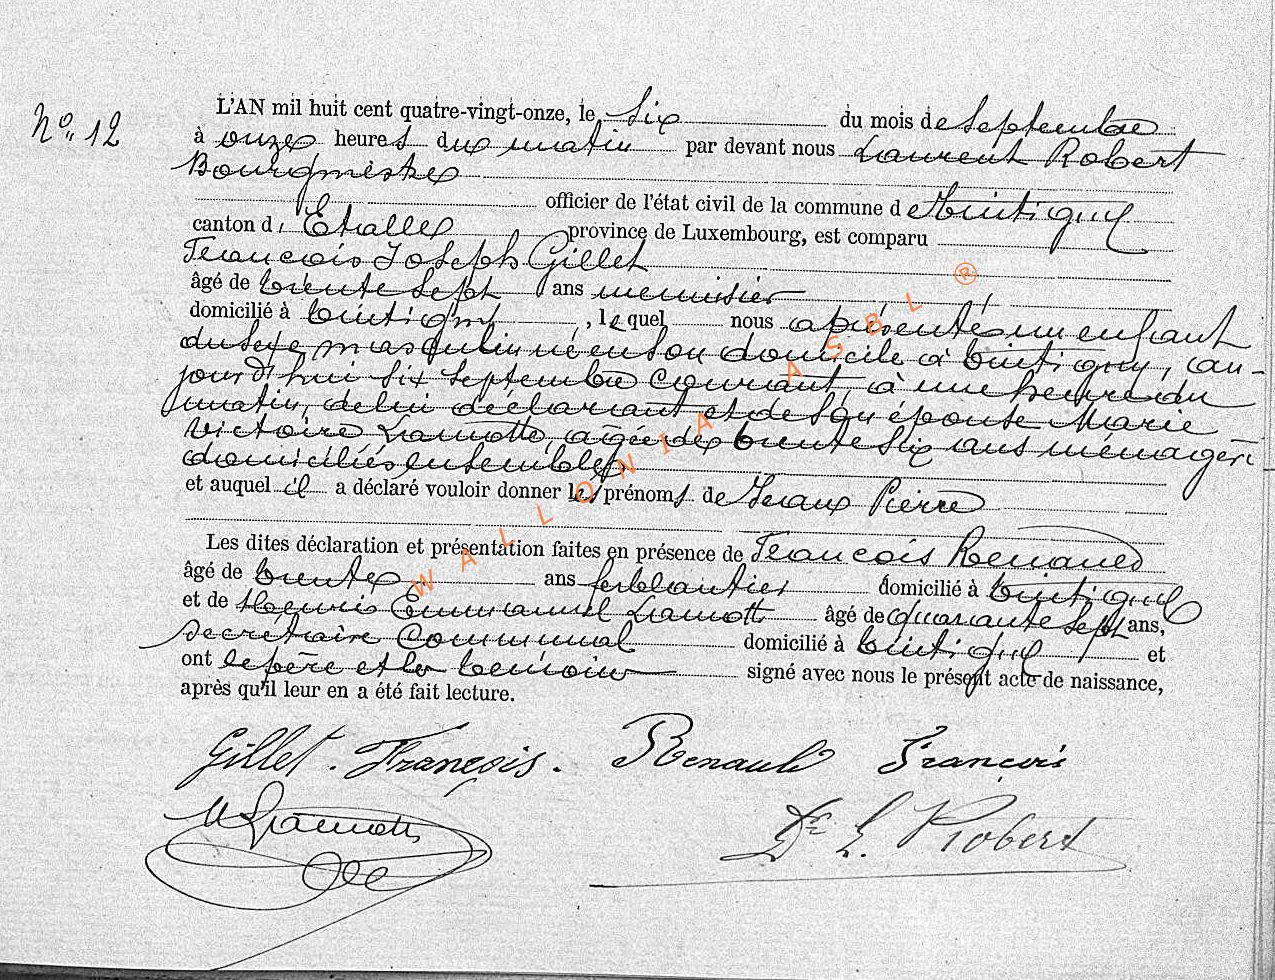 N° 12
L'AN mil huit cent quatre-vingt-onze, le six du mois de septembre
à onze heures du matin par devant nous Laurent Robert
Bourgmestre
officier de l'état civil de la commune de Tintigny
canton d'Etalle province de Luxembourg, est comparu
François Joseph Gillet
âgé de trente sept ans menuisier
domicilié à Tintigny, lequel nous a présenté un enfant
du sexe masculin né en son domicile à Tintigny, au-
jourd'hui six septembre courant, à une heure du
matin, de lui déclarant et de son épouse Marie
Victoire Lamotte, agée de trente six ans ménagère
domiciliés ensemble
et auquel il a déclaré vouloir donner les prénoms de Jean Pierre
Les dites déclaration et présentation faites en présence de François Renauld
âgé de trente ans ferblantier domicilié à Tintigny
et de Henri Emmanuel Lamotte âgé de quarante sept ans,
secrétaire communal domicilié à Tintigny et
ont le père et les témoins signé avec nous le présent acte de naissance,
après qu'il leur en a été fait lecture.
Gillet. François. Renauld François
Lamotte
Dr L. Robert
WALLONIA ASBL ®